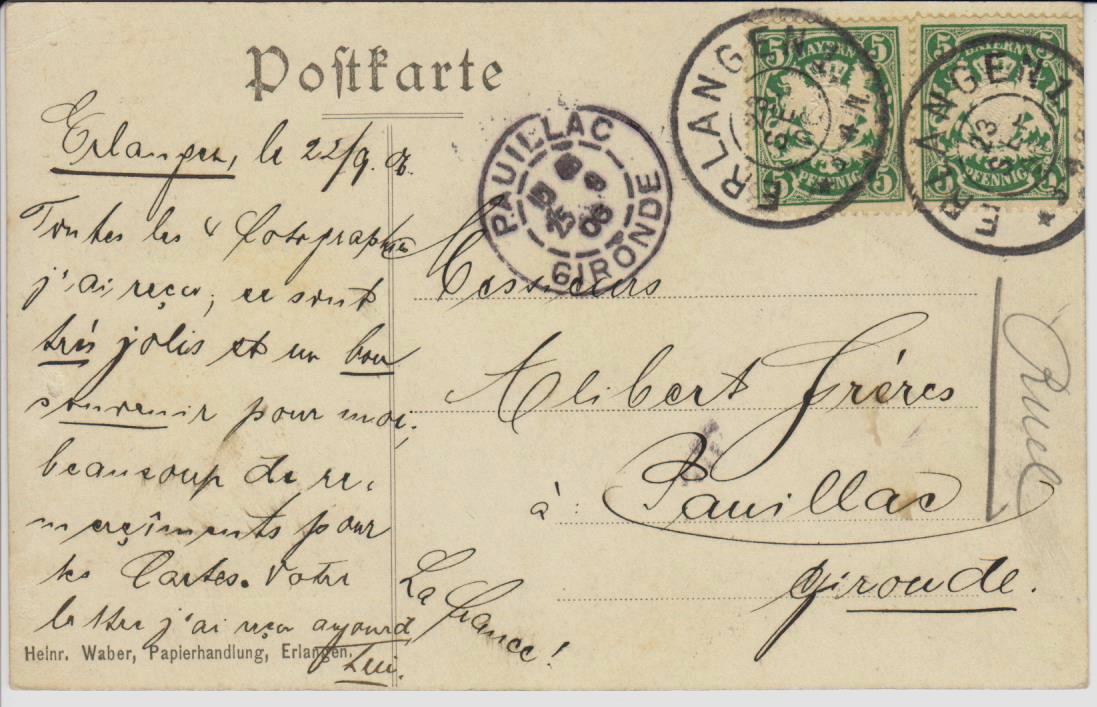 Postkarte
Erlangen, le 22/9. 06.
Toutes les 4 Fotographies
j'ai reçu; ce sont
très jolis et un bon
souvenir pour moi;
beaucoup de re-
merçîments pour
les Cartes. Votre
lettre j'ai reçu aujourd
hui.
Heinr. Waber, Papierhandlung, Erlangen.
PAUILLAC
25 9 06
GIRONDE
5 BAYERN 5
5 PFENNIG 5
ERLANGEN
SEP
3-4 N.
5 BAYERN 5
5 PFENNIG 5
ERLANGEN 1
23
SEP
3-4 N
Messieurs
Alibert Fréres
à: Pauillac
Gironde.
La France!